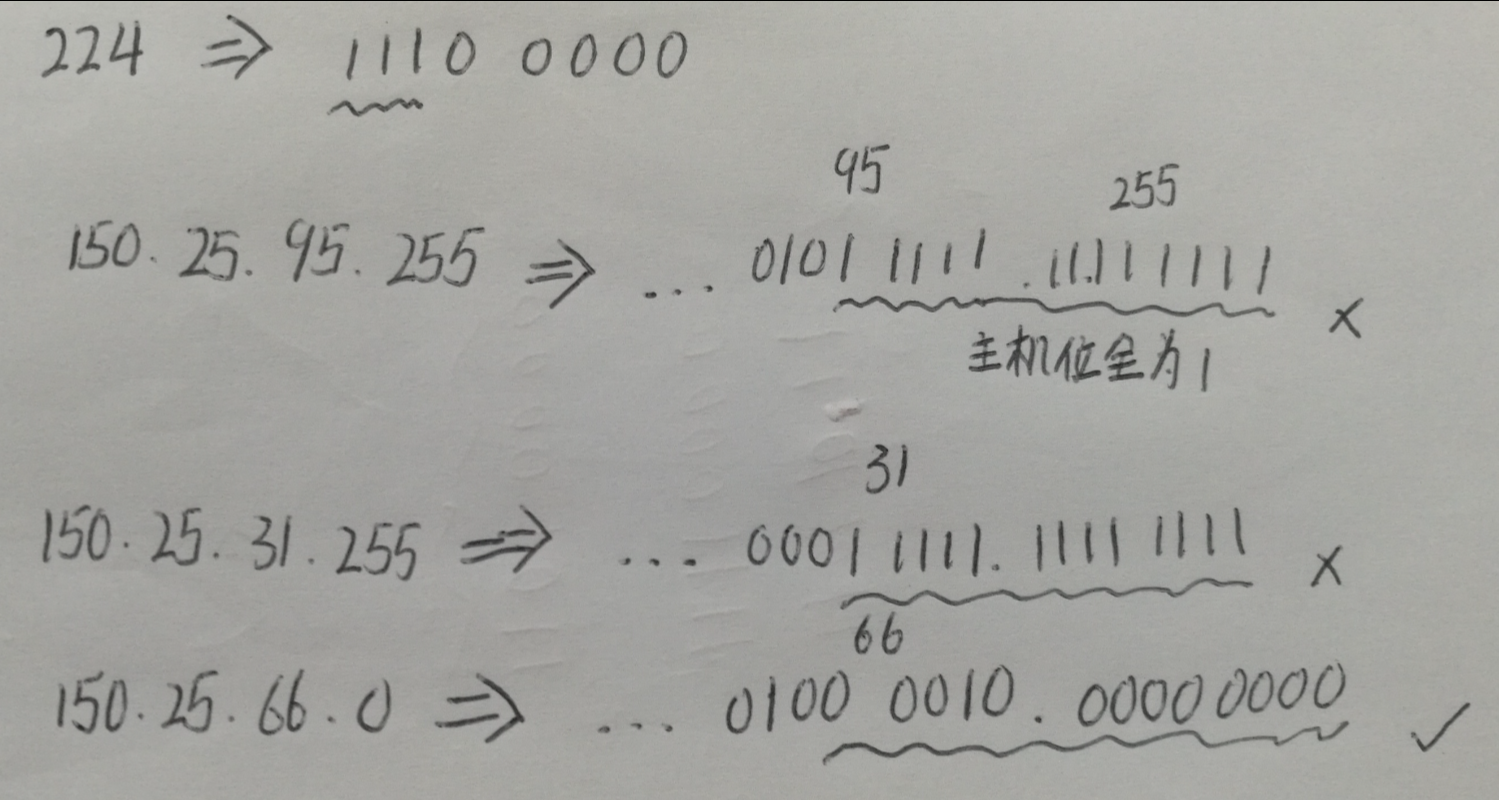 224 ⇒ 1110 0000
95 255
150. 25. 95. 255 ⇒ ... 0101 1111 .1111 1111 ×
主机位全为1
31
150. 25. 31. 255 ⇒ ... 0001 1111. 1111 1111 ×
66
150. 25. 66. 0 ⇒ ... 0100 0010. 0000 0000 ✓